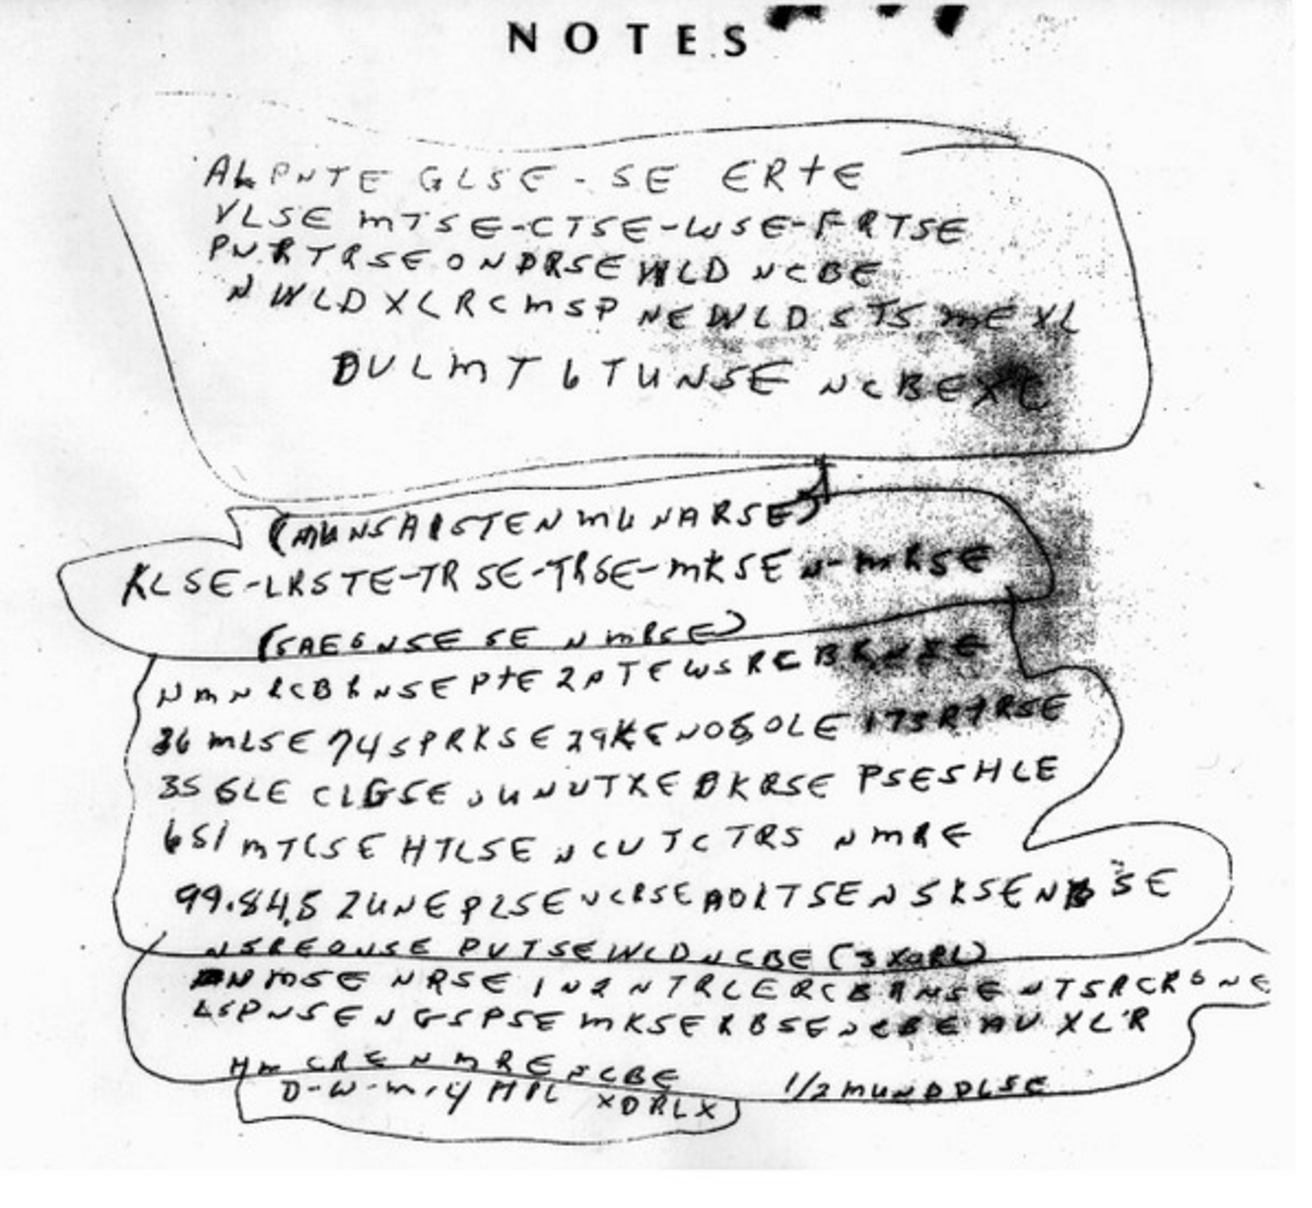 NOTES
ALPNTE GLSE - SE ERTE
VLSE MTSE-CTSE-WSE-FRTSE
PNRTRSEONDRSEWLD NCBE
NWLDXLRCMSP NEWLDSTS MEXL
DULMT6TUNSE NCBEXC
(MUNSAISTENMUNARSE)
KLSE-LRSTE-TRSE-TRSE-MKSEN-MRSE
(SAE6NSE SE NMRSE)
NMNRCBRNSEPTE2PTEWSRCBRNSE
36MLSE74SPRKSE29KENOSOLE173RTRSE
35GLE CLGSE UNUTXE DKRSE PSESHLE
651MTCSE HTLSE NCUTCTRS NMRE
99.84.52UNEPLSENCRSEAOLTSENSKSENBSE
NSREONSE PUTSEWLDNCBE (3XORL)
NMSE NRSE IN2NTRLERCBRNSENTSRCRSNE
LSPNSENGSPSE MKSERBSENCBEAUXL'R
HM CRE NMRENCBE 1/2MUNDDLSE
D-W-M-4 MIL XDRLX